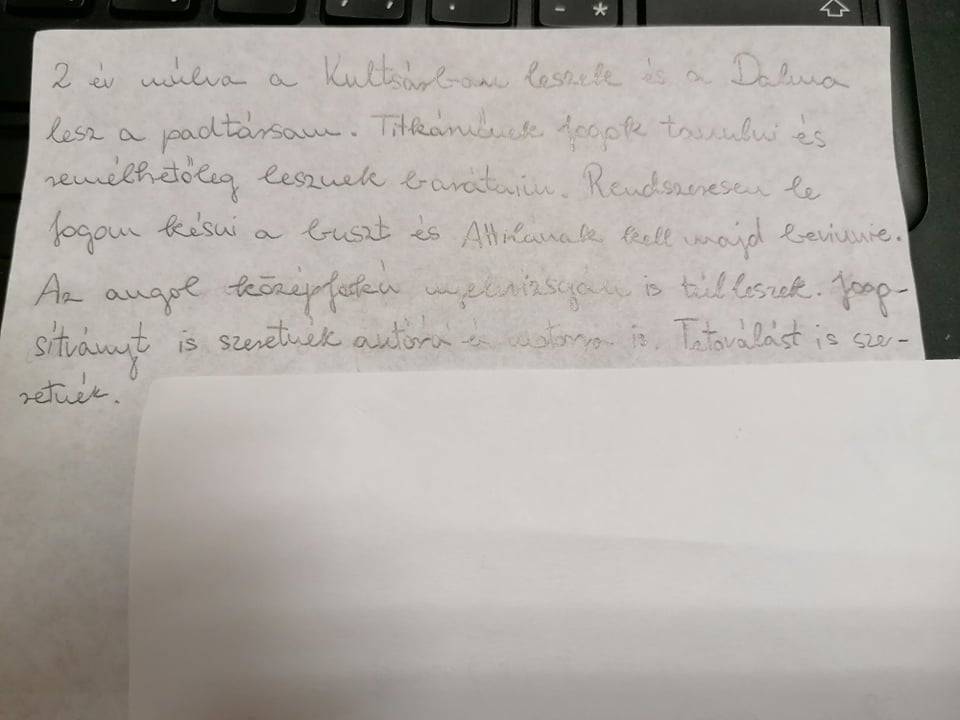 2 év múlva a Kultsárban leszek és a Dalma
lesz a padtársam. Titkárnőnek fogok tanulni és
remélhetőleg lesznek barátaim. Rendszeresen le
fogom késni a buszt és Attilának kell majd bevinnie.
Az angol középfokú nyelvizsgán is túl leszek. Jogo-
sítványt is szeretnék autóra és motorra is. Tetoválást is sze-
retnék.